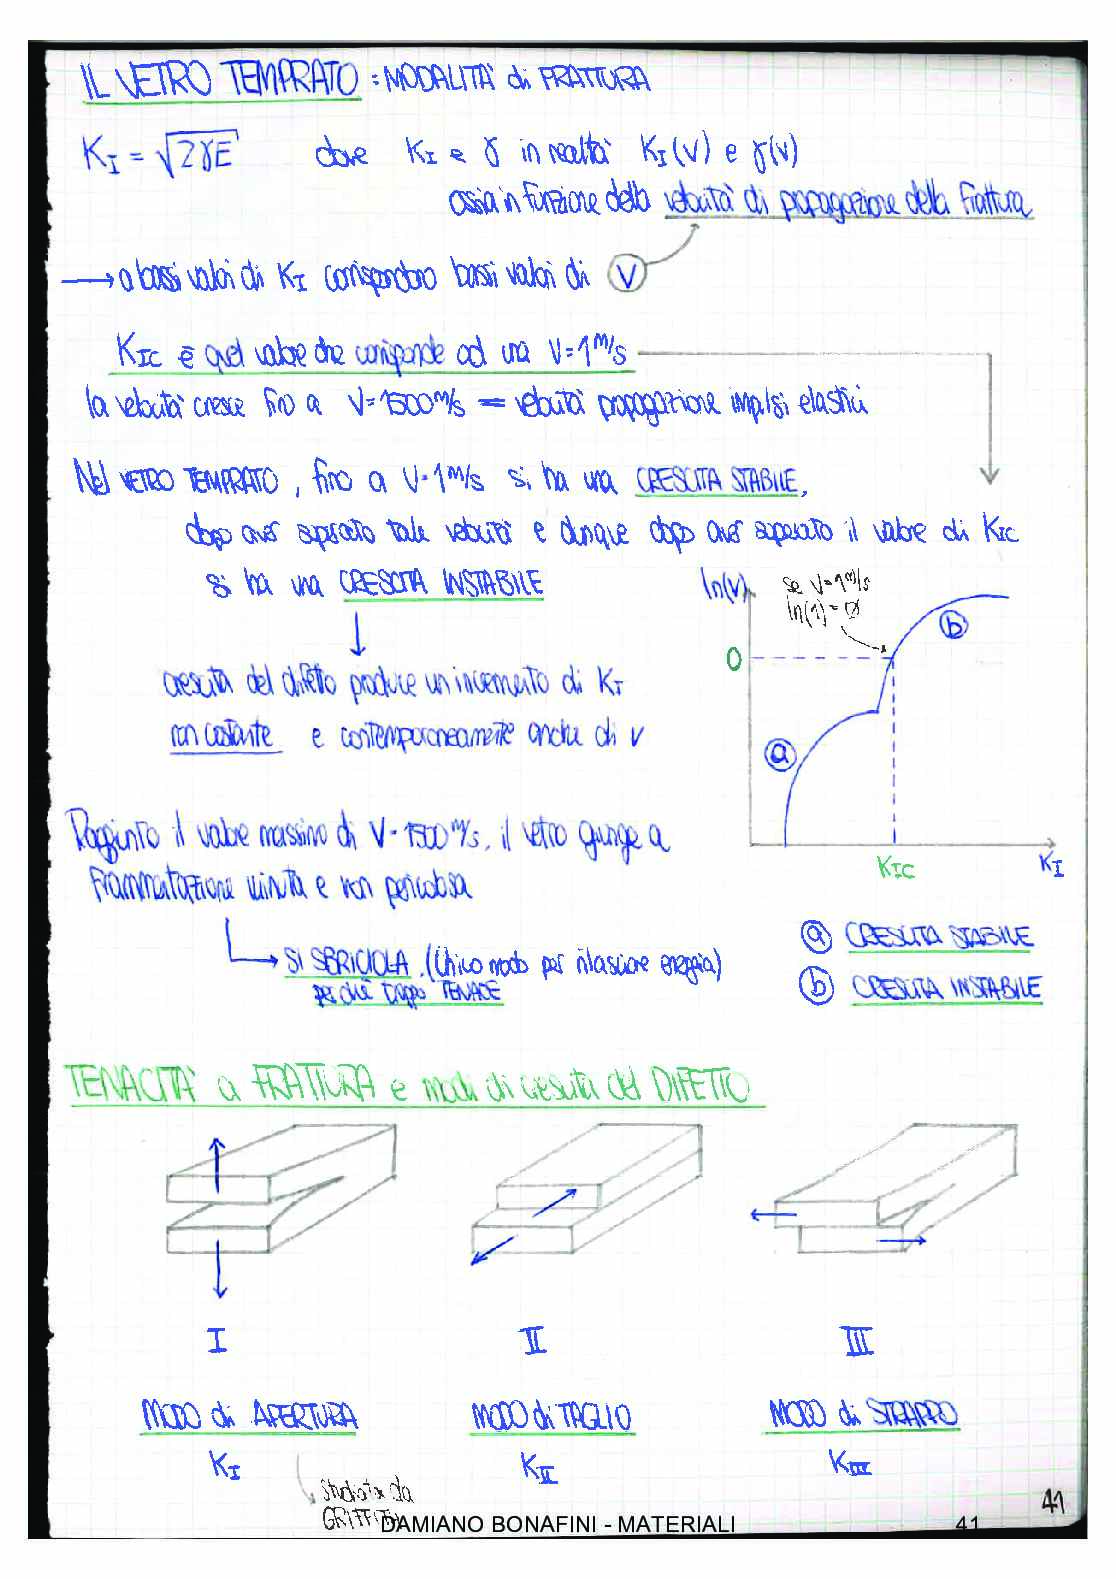 IL VETRO TEMPRATO : MODALITA' di FRATTURA
K_I = √2γE dove K_I e γ in realtà K_I(v) e γ(v)
ossia in funzione della velocità di propagazione della frattura
→ a bassi valori di K_I corrispondono bassi valori di V
K_IC è quel valore che corrisponde ad una V=1 m/s
la velocità cresce fino a V=1500 m/s = velocità propagazione impulsi elastici
Nel VETRO TEMPRATO, fino a V=1 m/s si ha una CRESCITA STABILE,
dopo aver superato tale velocità e dunque dopo aver superato il valore di K_IC
si ha una CRESCITA INSTABILE
crescita del difetto produce un incremento di K_I
non costante e contemporaneamente anche di V
ln(v)
se V=1 m/s
ln(1)=0
0
a
b
K_IC
K_I
Raggiunto il valore massimo di V=1500 m/s, il vetro giunge a
frammentazione minuta e non pericolosa
→ SI SBRICIOLA. (Unico modo per rilasciare energia)
perché troppo TENACE
a CRESCITA STABILE
b CRESCITA INSTABILE
TENACITA' a FRATTURA e modi di crescita del DIFETTO
I II III
MODO di APERTURA MODO di TAGLIO MODO di STRAPPO
K_I K_II K_III
studiata da
GRIFFITH
41
DAMIANO BONAFINI - MATERIALI 41